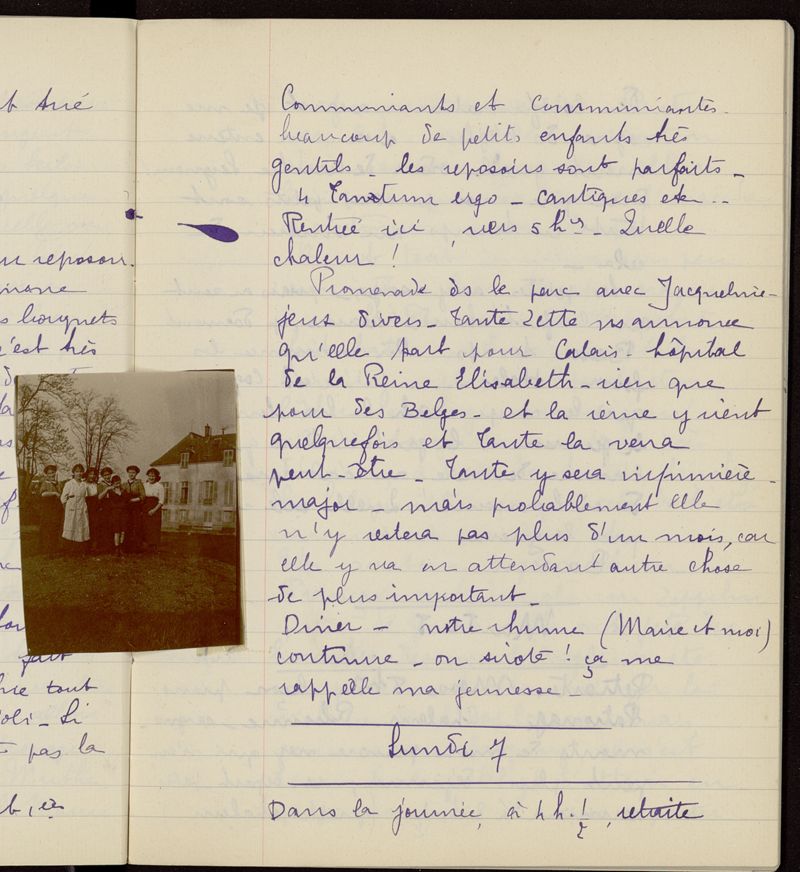 t tué
reposoir.
bouquets
c'est très
la
fait
tout
joli - Si
pas la
Communiants et Communiantes.
beaucoup de petits enfants très
gentils - les reposoirs sont parfaits -
4 Tantum ergo - cantiques etc ..
Rentrée ici, vers 5 hrs - Quelle
chaleur !
Promenade ds le parc avec Jacqueline -
jeux divers - Tante Zette ns annonce
qu'elle part pour Calais - hôpital
de la Reine Elisabeth - rien que
pour des Belges - et la reine y vient
quelquefois et Tante la verra
peut-être - Tante y sera infirmière -
major - mais probablement elle
n'y restera pas plus d'un mois, car
elle y va en attendant autre chose
de plus important -
Dîner - notre rhume (Marie et moi)
continue - on sirote ! ça me
rappelle ma jeunesse -
Lundi 7
Dans la journée, à 4 h. 1/2, retraite